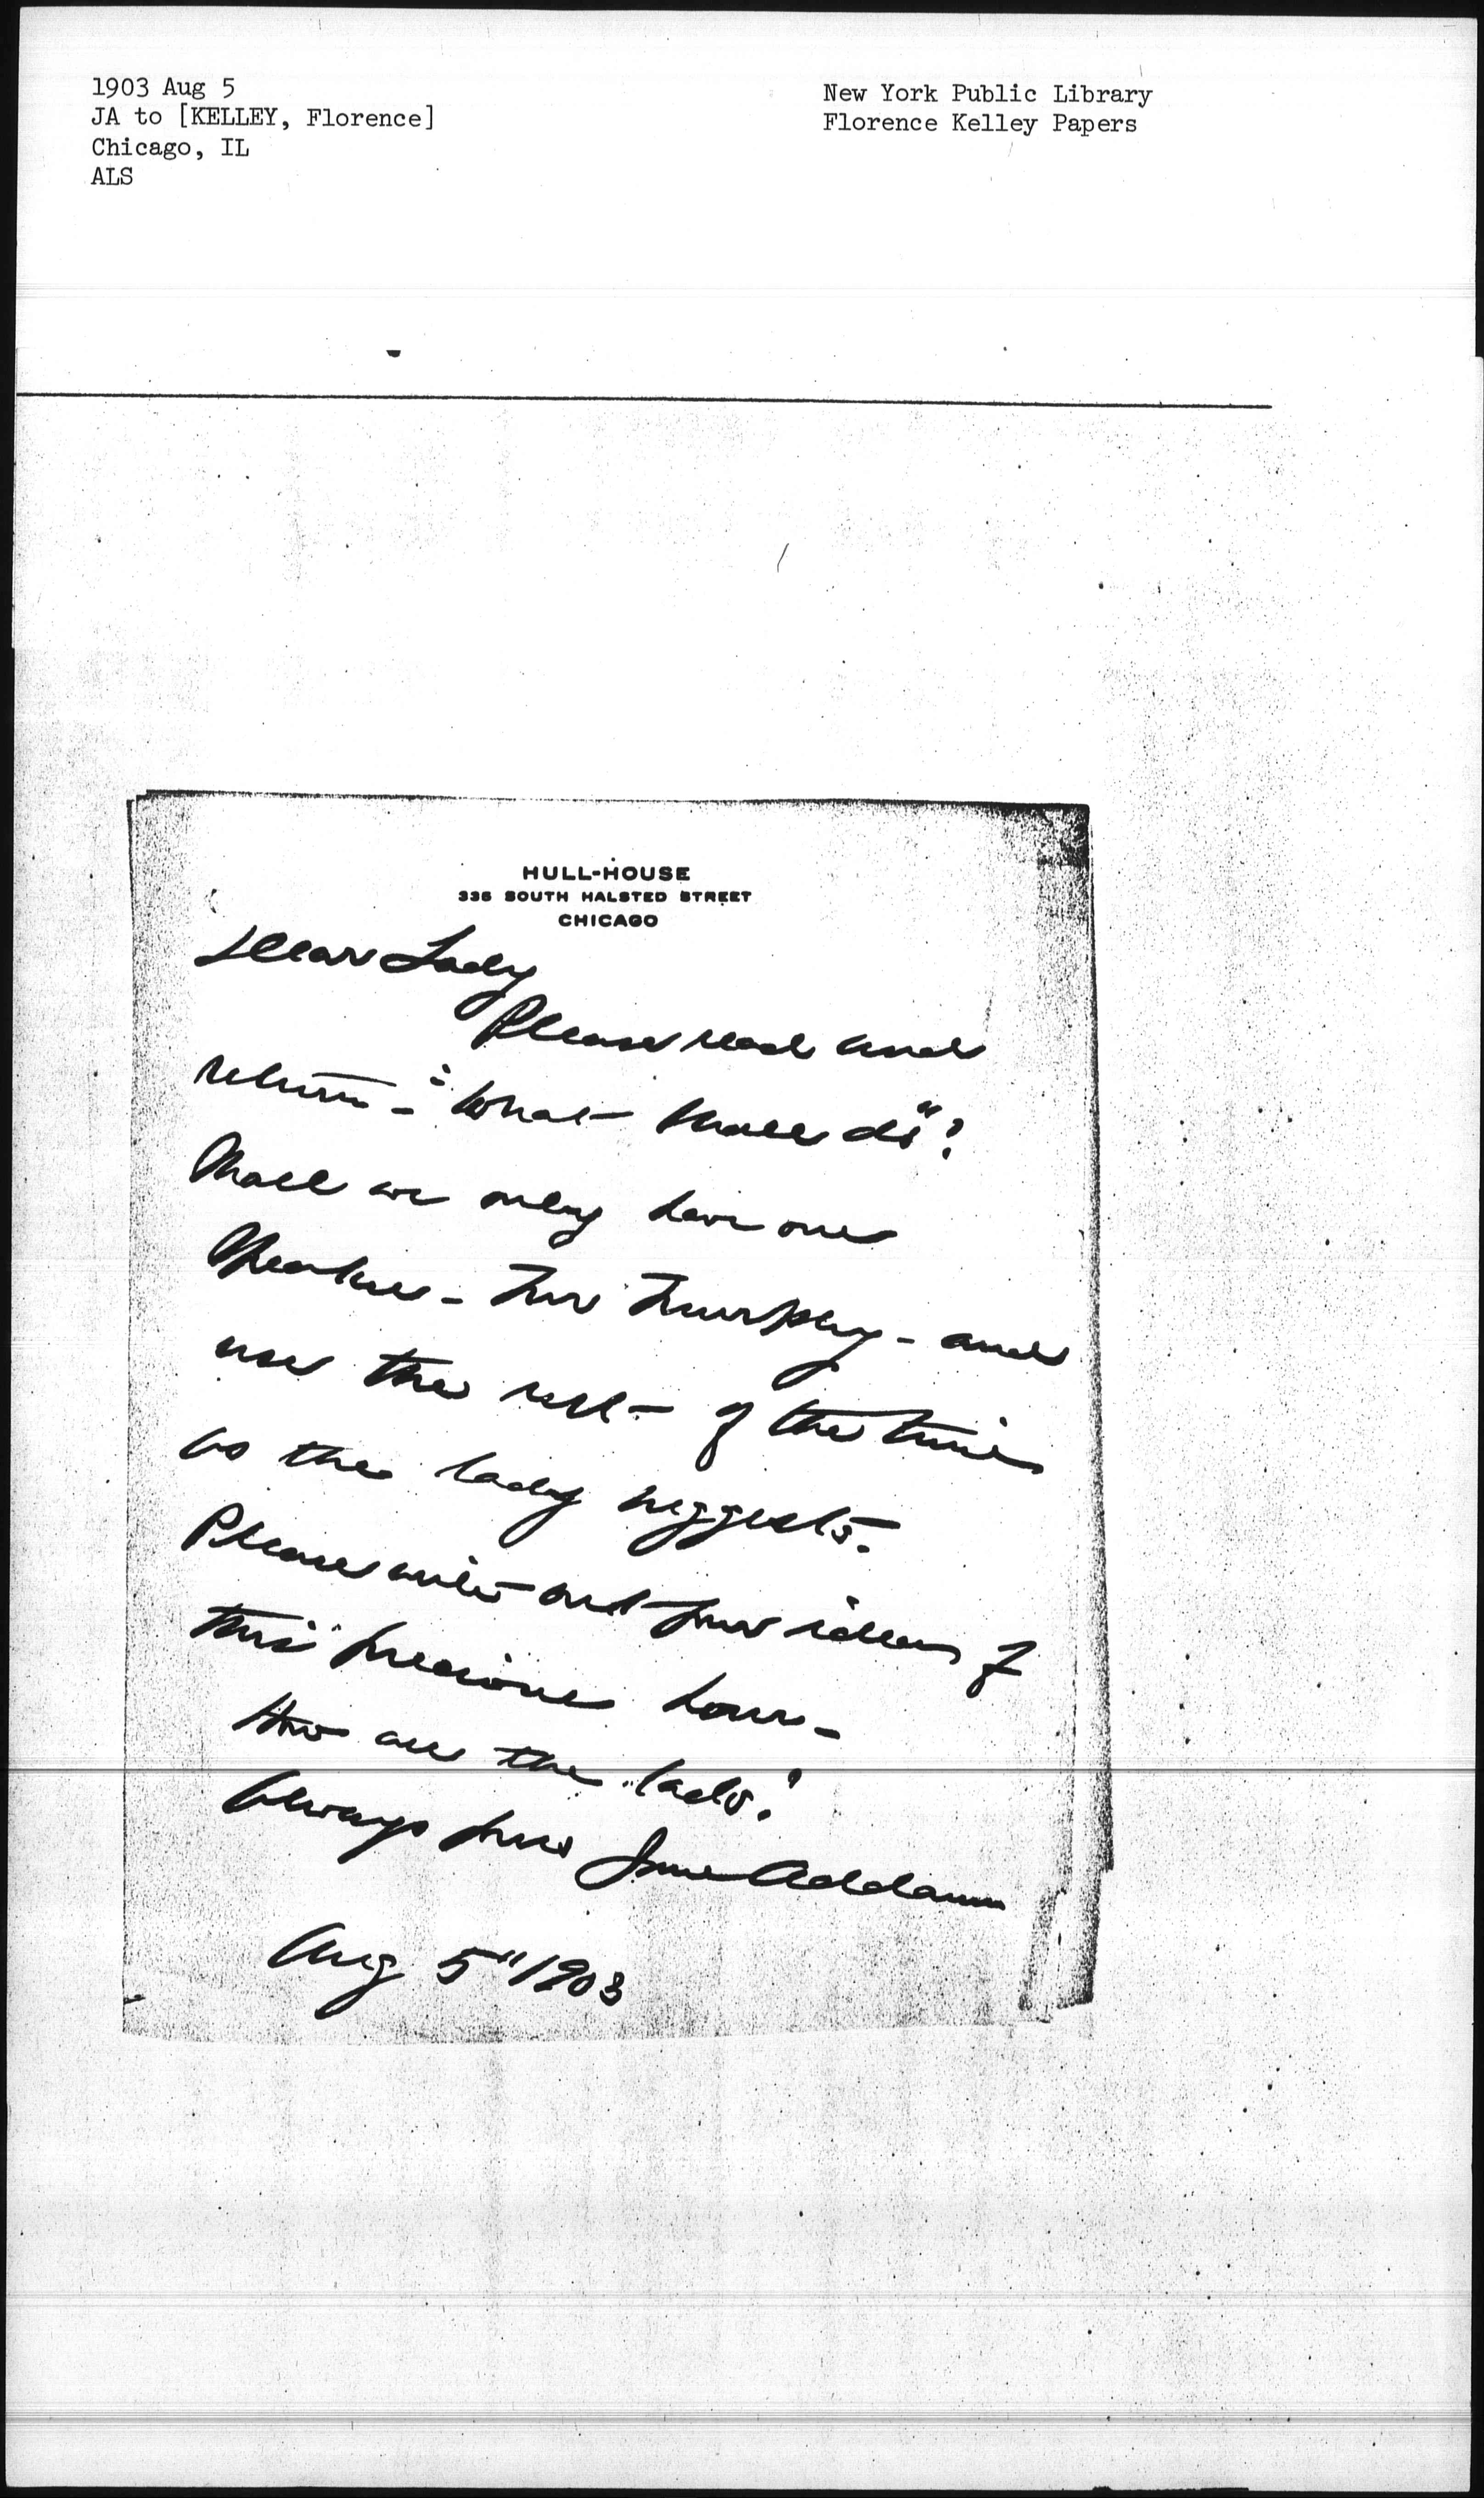 1903 Aug 5
JA to [KELLEY, Florence]
Chicago, IL
ALS
New York Public Library
Florence Kelley Papers
HULL-HOUSE
335 SOUTH HALSTED STREET
CHICAGO
Dear Lady
Please read and
return - "What shall do"?
Shall we only have one
speaker - Mr Murphy - and
use the rest of the time
as the lady suggests.
Please write out your ideas of
this precious hour -
How are the lads?
Always yours Jane Addams
Aug 5" 1903